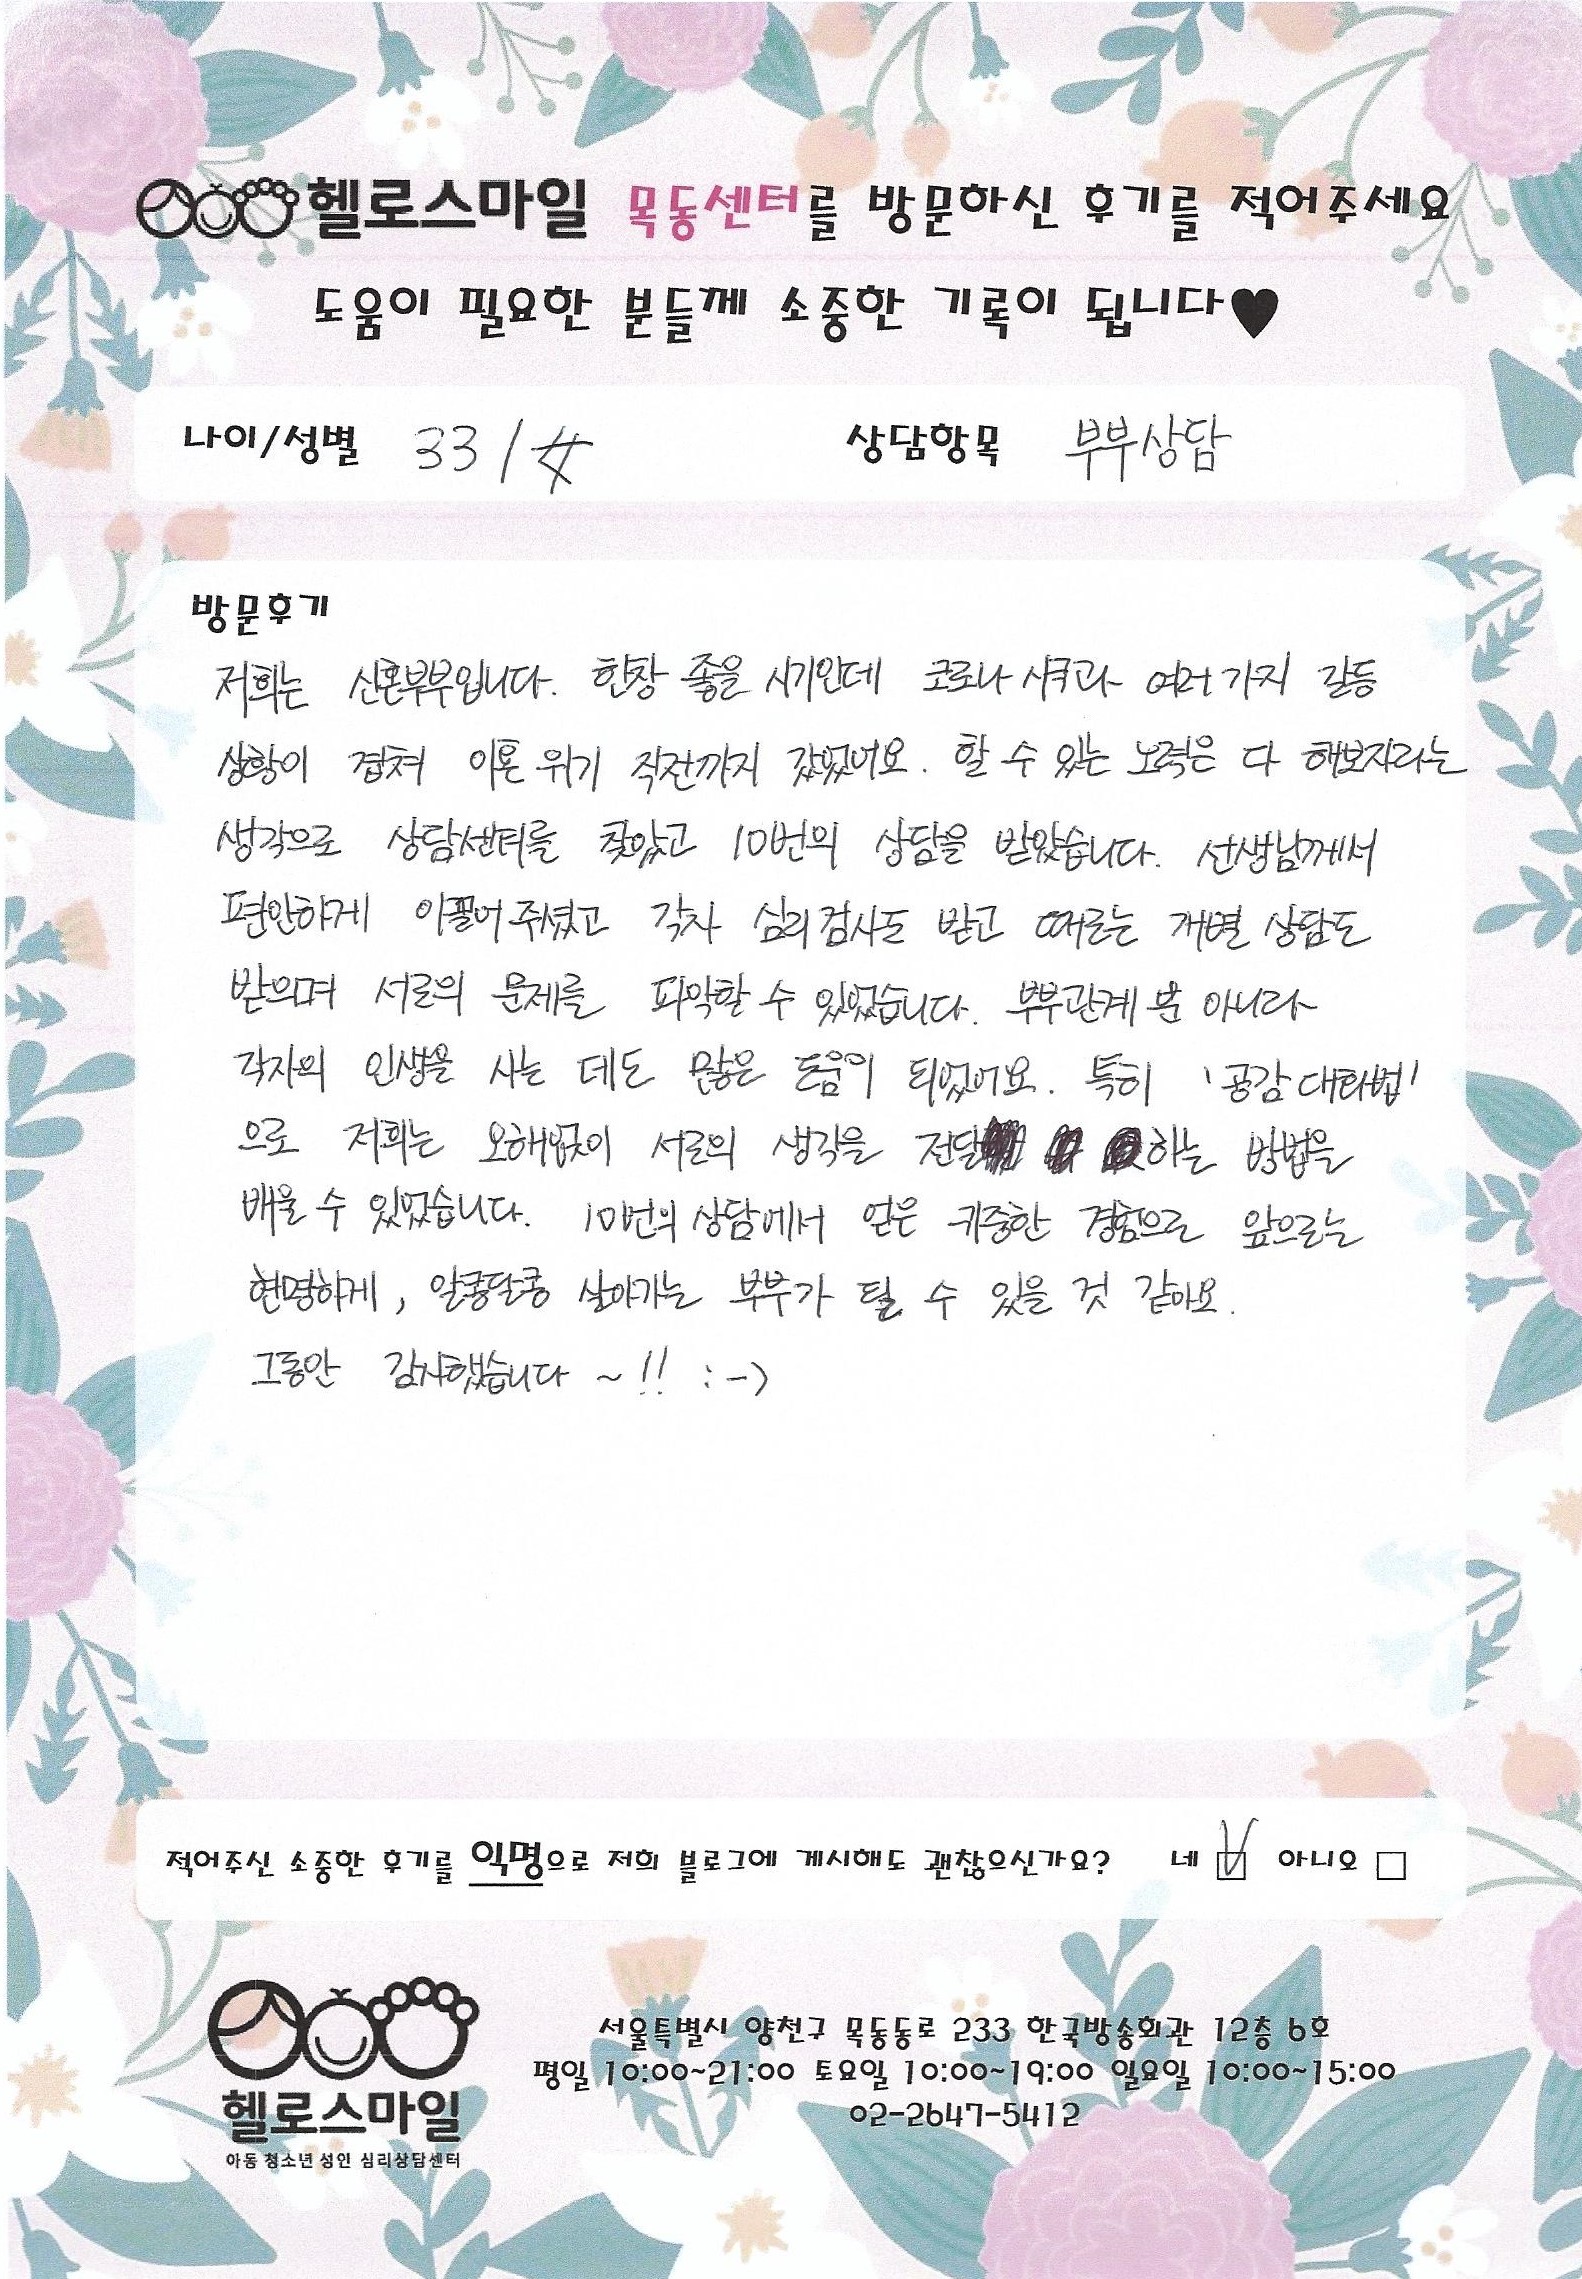 헬로스마일 목동센터를 방문하신 후기를 적어주세요
도움이 필요한 분들께 소중한 기록이 됩니다♥
나이/성별 33 / 女 상담항목 부부상담
방문후기
저희는 신혼부부입니다. 한창 좋을 시기인데 코로나 시국과 여러가지 갈등
상황이 겹쳐 이혼 위기 직전까지 갔었어요. 할 수 있는 노력은 다 해보자라는
생각으로 상담센터를 찾았고 10번의 상담을 받았습니다. 선생님께서
편안하게 이끌어 주셨고 각자 심리검사도 받고 때로는 개별 상담도
받으며 서로의 문제를 파악할 수 있었습니다. 부부관계 뿐 아니라
각자의 인생을 사는 데도 많은 도움이 되었어요. 특히 '공감 대화법'
으로 저희는 오해없이 서로의 생각을 전달하는 방법을
배울 수 있었습니다. 10번의 상담에서 얻은 귀중한 경험으로 앞으로는
현명하게, 알콩달콩 살아가는 부부가 될 수 있을 것 같아요.
그동안 감사했습니다 ~!! :-)
적어주신 소중한 후기를 익명으로 저희 블로그에 게시해도 괜찮으신가요? 네 ☑ 아니오 □
헬로스마일
아동 청소년 성인 심리상담센터
서울특별시 양천구 목동동로 233 한국방송회관 12층 6호
평일 10:00~21:00 토요일 10:00~19:00 일요일 10:00~15:00
02-2647-5412